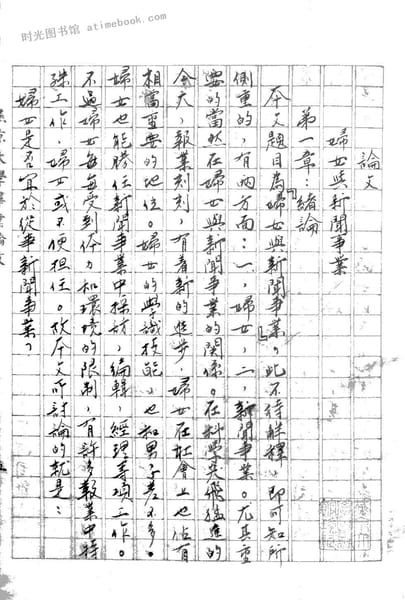 时光图书馆 atimebook.com
論文
婦女與新聞事業
第一章：緒論
本文題目為「婦女與新聞事業」，此不待解釋，即可知所
側重的，有兩方面：一，婦女，二，新聞事業。尤其重
要的當然在婦女與新聞事業的關係。在科學突飛猛進的
今天，報業刻刻，有著新的進步，婦女在社會上也佔有
相當重要的地位。婦女的學識技能，也和男子差不多。
婦女也能勝任新聞事業中採訪，編輯，經理等項工作。
不過婦女每每受到体力和環境的限制，有許多報業中特
殊工作，婦女或不便担任。故本文所討論的就是：
婦女是否宜於從事新聞事業？